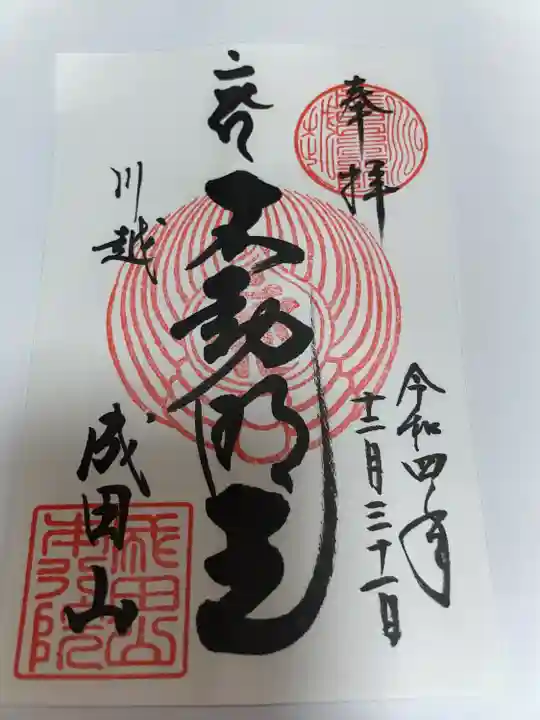 奉拝
令和四年
十二月三十一日
不動明王
川越
成田山
成田山
本行院